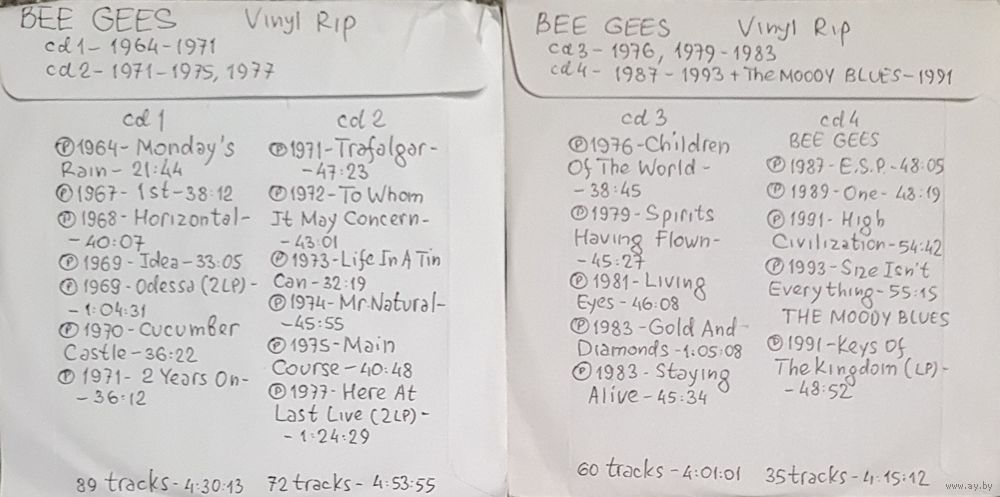 BEE GEES Vinyl Rip
cd1 - 1964-1971
cd2 - 1971-1975, 1977
cd 1
Ⓟ1964- Monday's
Rain - 21:44
Ⓟ1967- 1st-38:12
Ⓟ1968- Horizontal-
-40:07
Ⓟ1969- Idea-33:05
Ⓟ1969- Odessa (2LP)-
-1:04:31
Ⓟ1970-Cucumber
Castle-36:22
Ⓟ1971- 2 Years On-
-36:12
89 tracks - 4:30:13
cd 2
Ⓟ1971-Trafalgar-
-47:23
Ⓟ1972-To Whom
It May Concern-
-43:01
Ⓟ1973-Life In A Tin
Can-32:19
Ⓟ1974-Mr. Natural-
-45:55
Ⓟ1975-Main
Course-40:48
Ⓟ1977-Here At
Last Live (2LP)-
-1:24:29
72 tracks - 4:53:55
BEE GEES Vinyl Rip
cd3 - 1976, 1979-1983
cd4 - 1987-1993 + The MOODY BLUES-1991
cd 3
Ⓟ1976-Children
Of The World -
-38:45
Ⓟ1979-Spirits
Having Flown-
-45:27
Ⓟ1981-Living
Eyes-46:08
Ⓟ1983-Gold And
Diamonds-1:05:08
Ⓟ1983-Staying
Alive-45:34
60 tracks-4:01:01
cd4
BEE GEES
Ⓟ1987-E.S.P.-48:05
Ⓟ1989-One-48:19
Ⓟ1991-High
Civilization-54:42
Ⓟ1993-Size Isn't
Everything-55:15
THE MOODY BLUES
Ⓟ1991-Keys Of
The Kingdom (LP)-
-48:52
35 tracks-4:15:12
www.ay.by